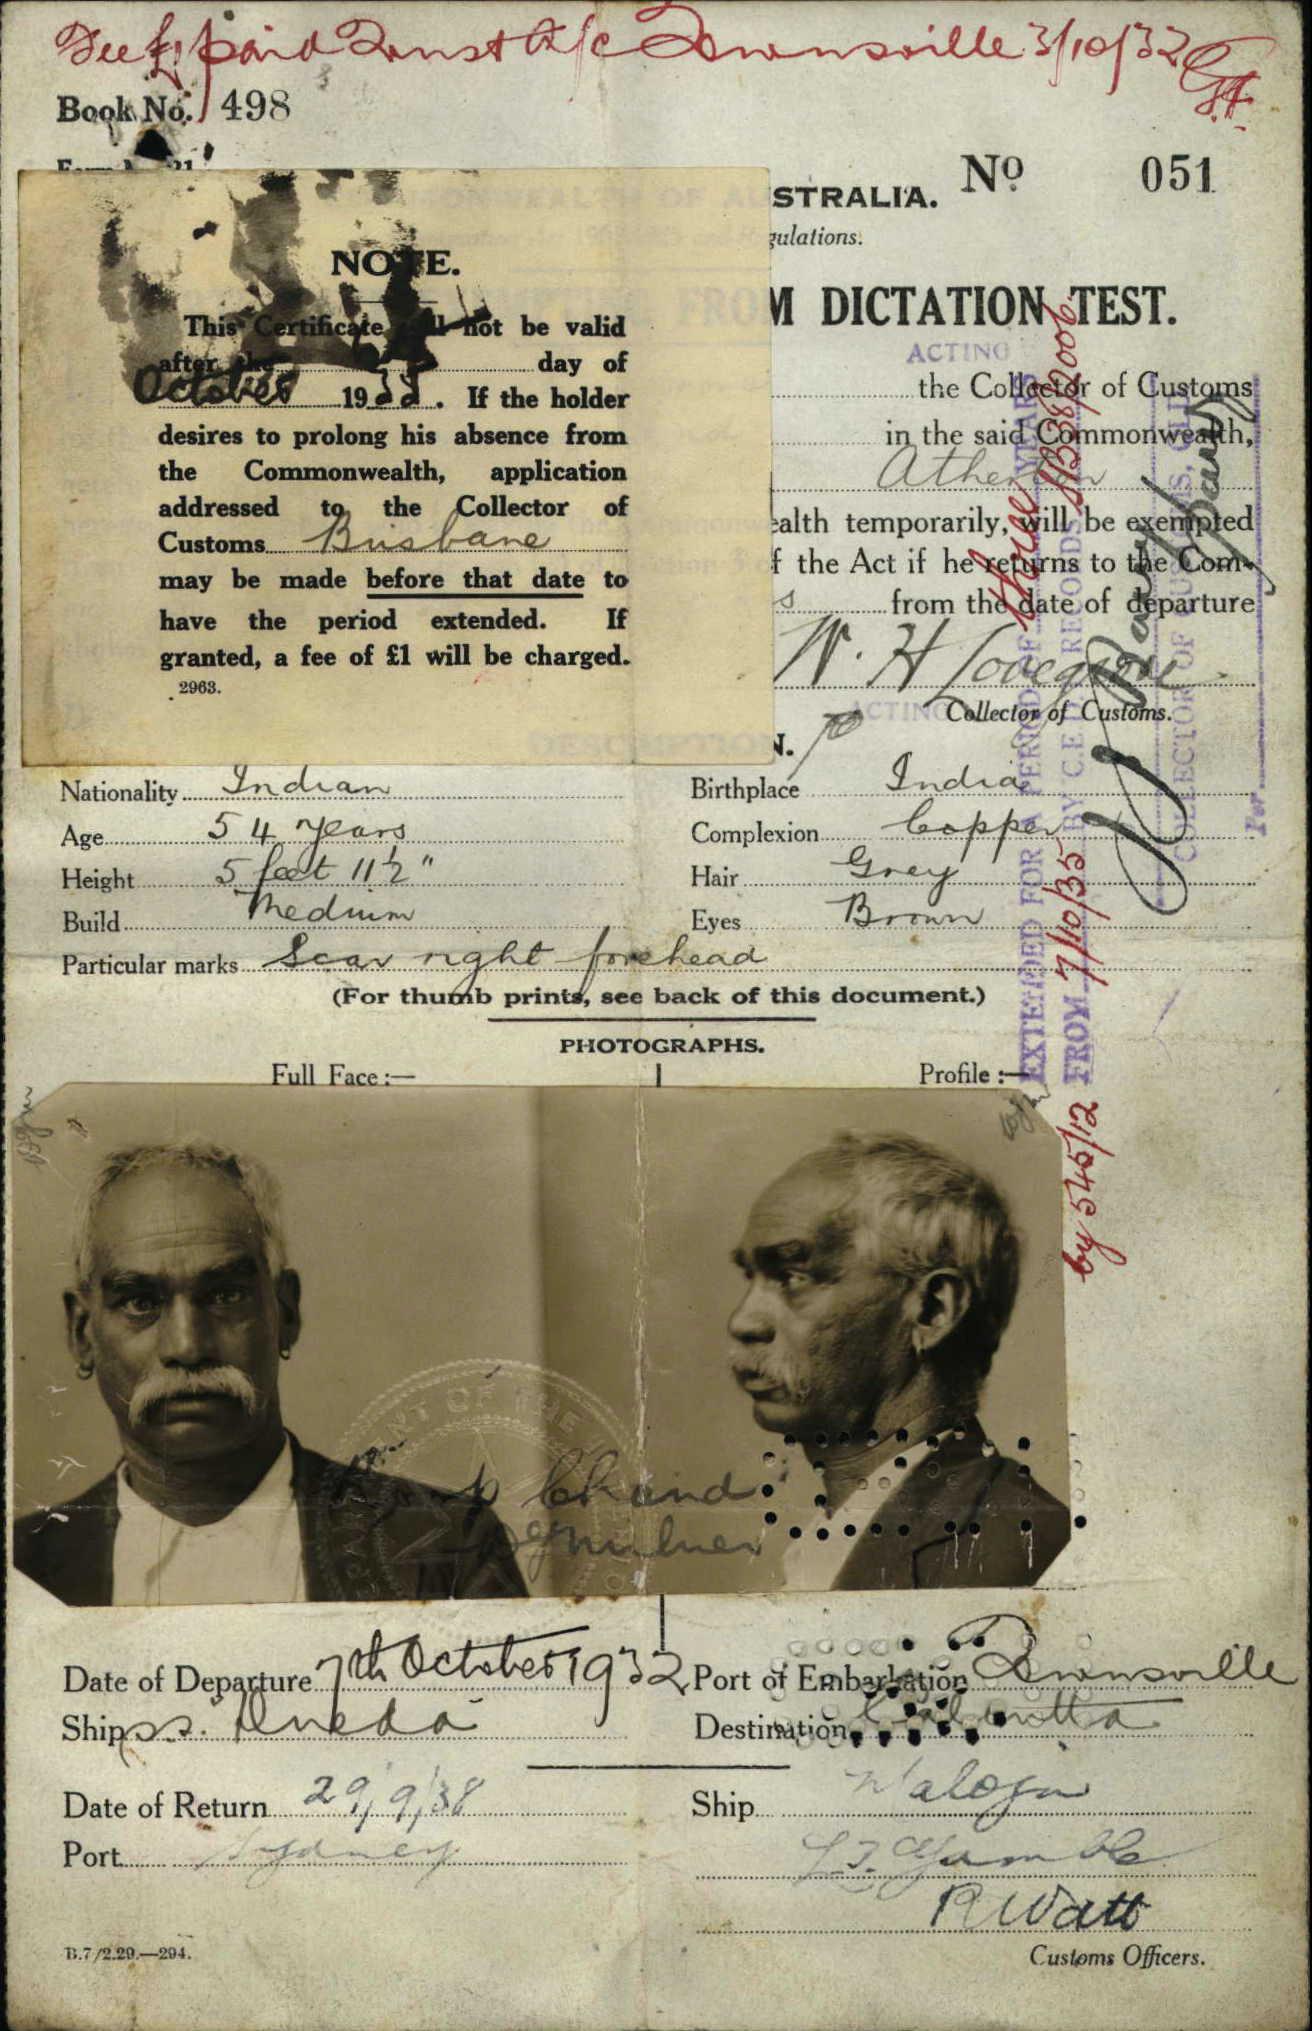 Fee £1 paid Townsville 3/10/32
Book No. 498
No. 051
STRALIA.
gulations.
M DICTATION TEST.
ACTING
the Collector of Customs
in the said Commonwealth,
Atherton
ealth temporarily, will be exempted
f the Act if he returns to the Com-
s from the date of departure
W. H Lovegrove
ACTING Collector of Customs.
N.
NOTE.
This Certificate not be valid
after the day of
October 19 . If the holder
desires to prolong his absence from
the Commonwealth, application
addressed to the Collector of
Customs Brisbane
may be made before that date to
have the period extended. If
granted, a fee of £1 will be charged.
2963.
EXTENDED FOR A PERIOD OF three YEARS
FROM 7/10/35 BY C.E. RECORDS
by 545/12
COLLECTOR OF CUSTOMS,
Per
DESCRIPTION
Nationality Indian Birthplace India
Age 54 years Complexion Copper
Height 5 feet 11½" Hair Grey
Build Medium Eyes Brown
Particular marks Scar right forehead
(For thumb prints, see back of this document.)
PHOTOGRAPHS.
Full Face:— Profile:—
Chand
Date of Departure 7th October 1932 Port of Embarkation Townsville
Ship s.s. Destination Calcutta
Date of Return 29/9/38 Ship
Port Sydney
Gamble
R Watt
B.7/2.29.—294. Customs Officers.